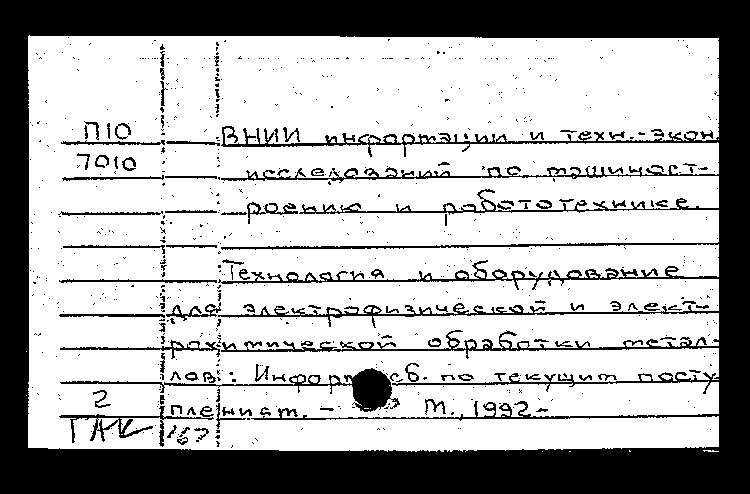 П10
7010
ВНИИ информации и техн.-экон.
исследований по машиност-
роению и робототехнике.
Технология и оборудование
для электрофизической и элект-
рохимической обработки метал-
лов: Информ. сб. по текущим посту
плениям. - М., 1992-
2
ГАК
167